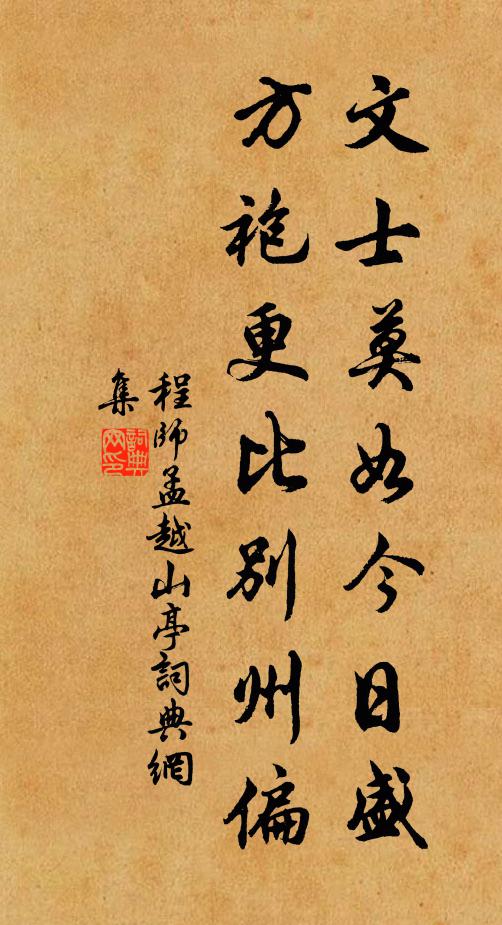 文士莫如今日盛
方袍更比別州偏
程師孟越山亭詞典網
集
詞典
网印